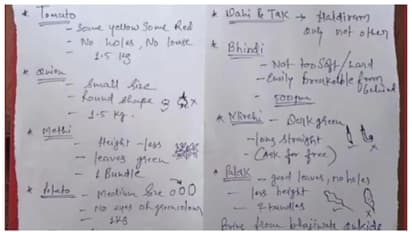 * Tomato
- Some yellow some Red
- No holes, No loose
1.5 kg
* Onion
- Small size
- Round shape
- 1.5 kg.
* Methi
- Height - less
- leaves green
- 1 Bundle
* Potato - Medium Size
- No eyes
- 1 kg
* Dahi & Tak → Haldiram
only not other
* Bhindi
- Not too Soft / Hard
- Easily breakable from behind
- 500gm
- Dark green
- long straight
- (Ask for free)
* Palak - good leaves, no holes
- less height
bhajiwala outside